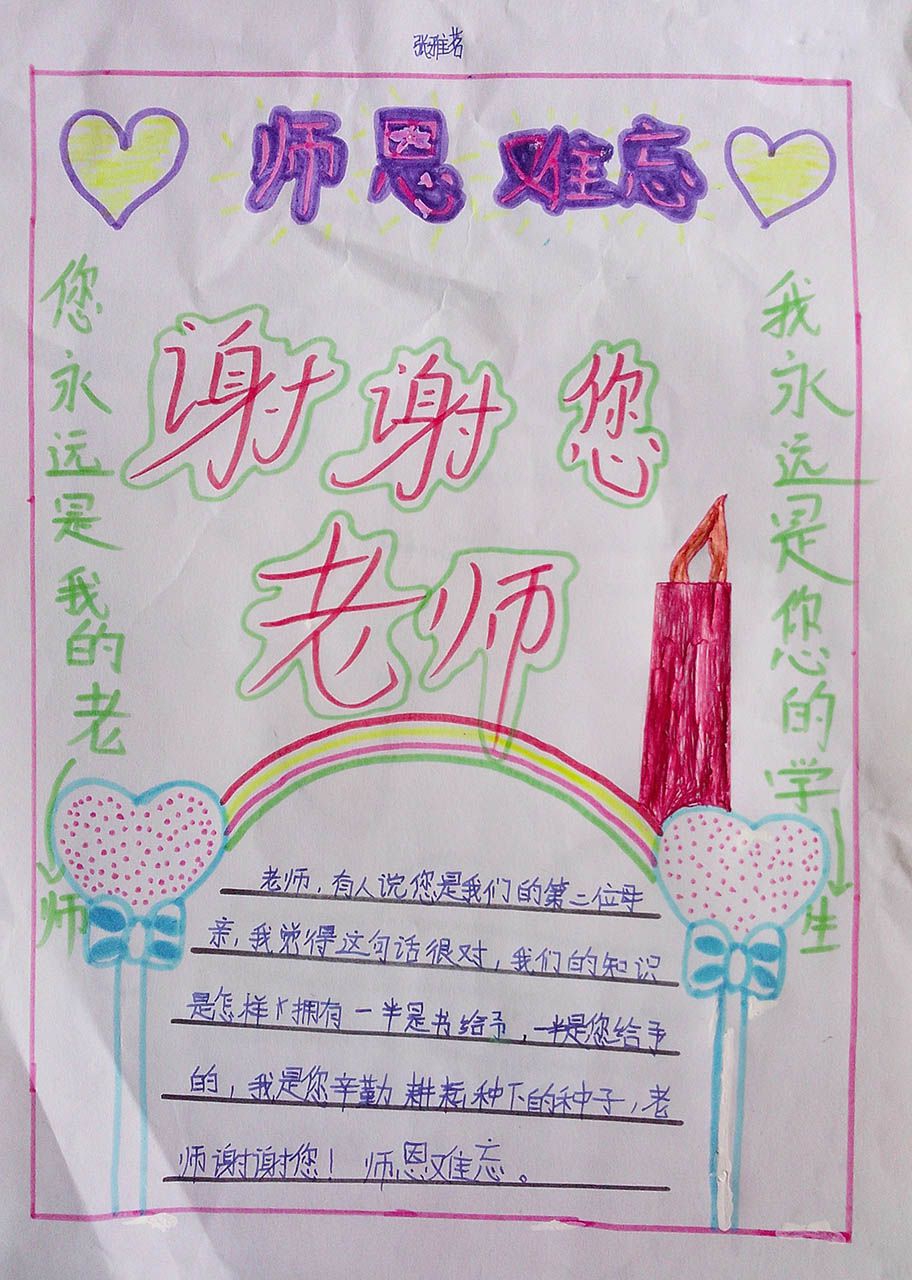 张雅茗
师恩难忘
谢谢您
老师
您永远是我的老师
我永远是您的学生
老师，有人说您是我们的第二位母
亲，我觉得这句话很对，我们的知识
是怎样拥有一半是书给予，一半是您给予
的，我是您辛勤耕耘种下的种子，老
师谢谢您！师恩难忘。